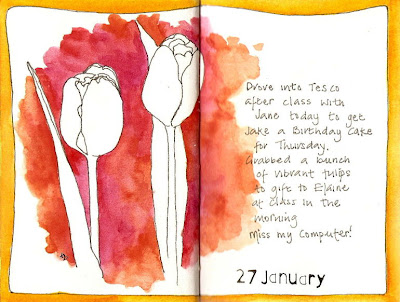 Drove into Tesco
after class with
Jane today to get
Jake a Birthday Cake
for Thursday.
Grabbed a bunch
of vibrant tulips
to gift to Elaine
at class in the
morning
Miss my Computer!
27 January